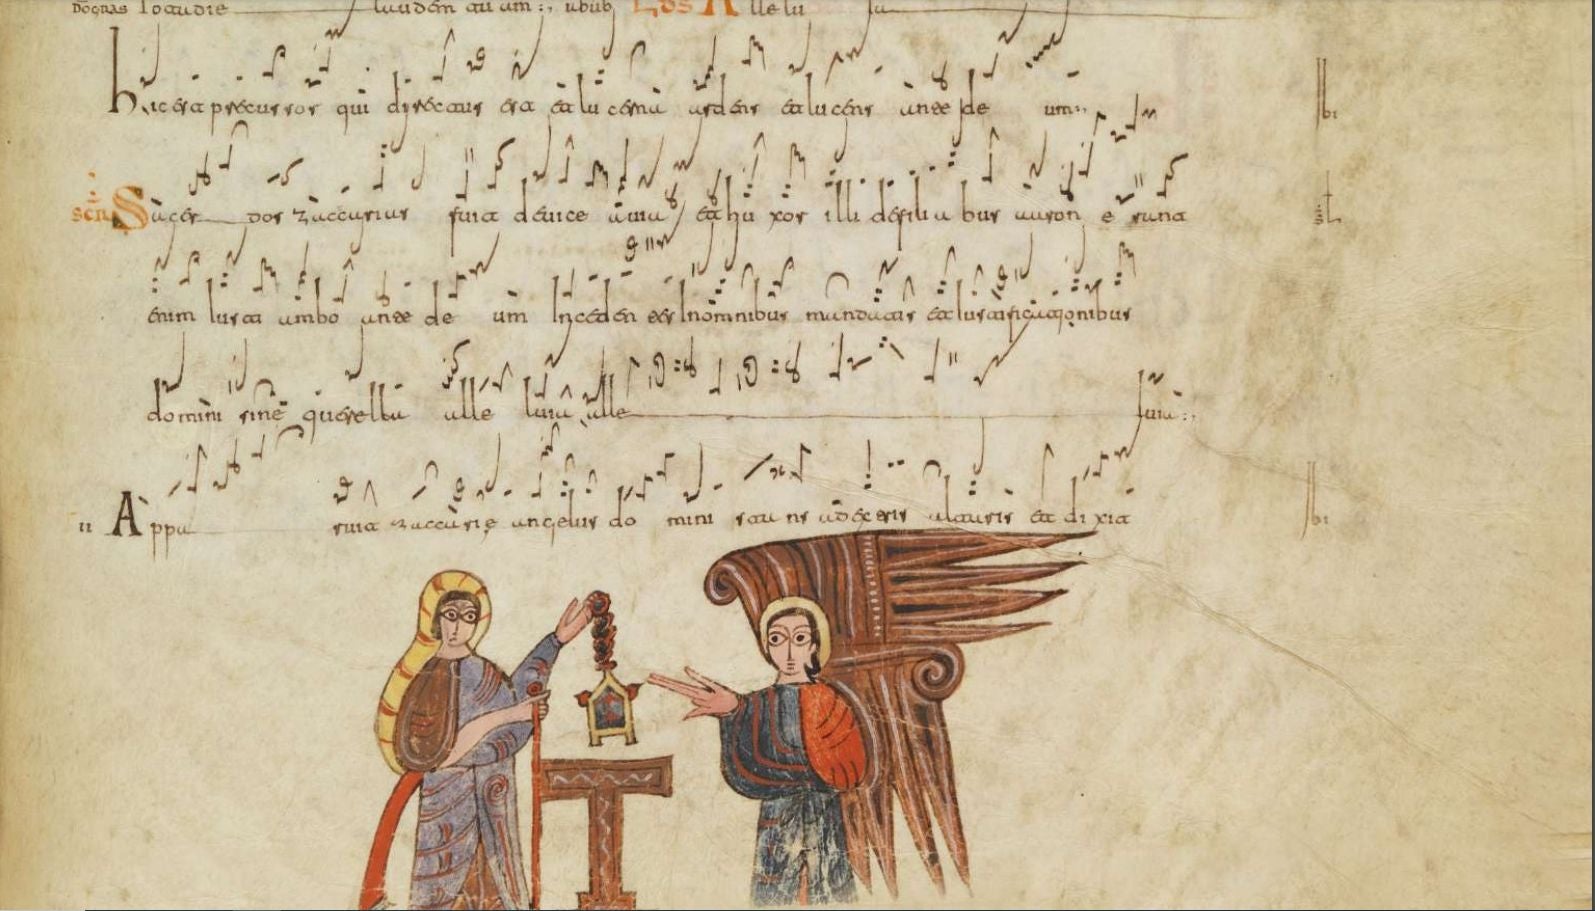 Alleluia
hic est precursor qui directus est et lucerna ardens et lucens ante deum
Sacerdos zaccarias fuit de uice abia et huxor illi de filiabus aaron erant
enim iusti ambo ante deum Incedentes In omnibus mandatis et iustificationibus
domini sine querella alleluia alleluia
II Apparuit zaccarie angelus domini stans a dexteris altaris et dixit